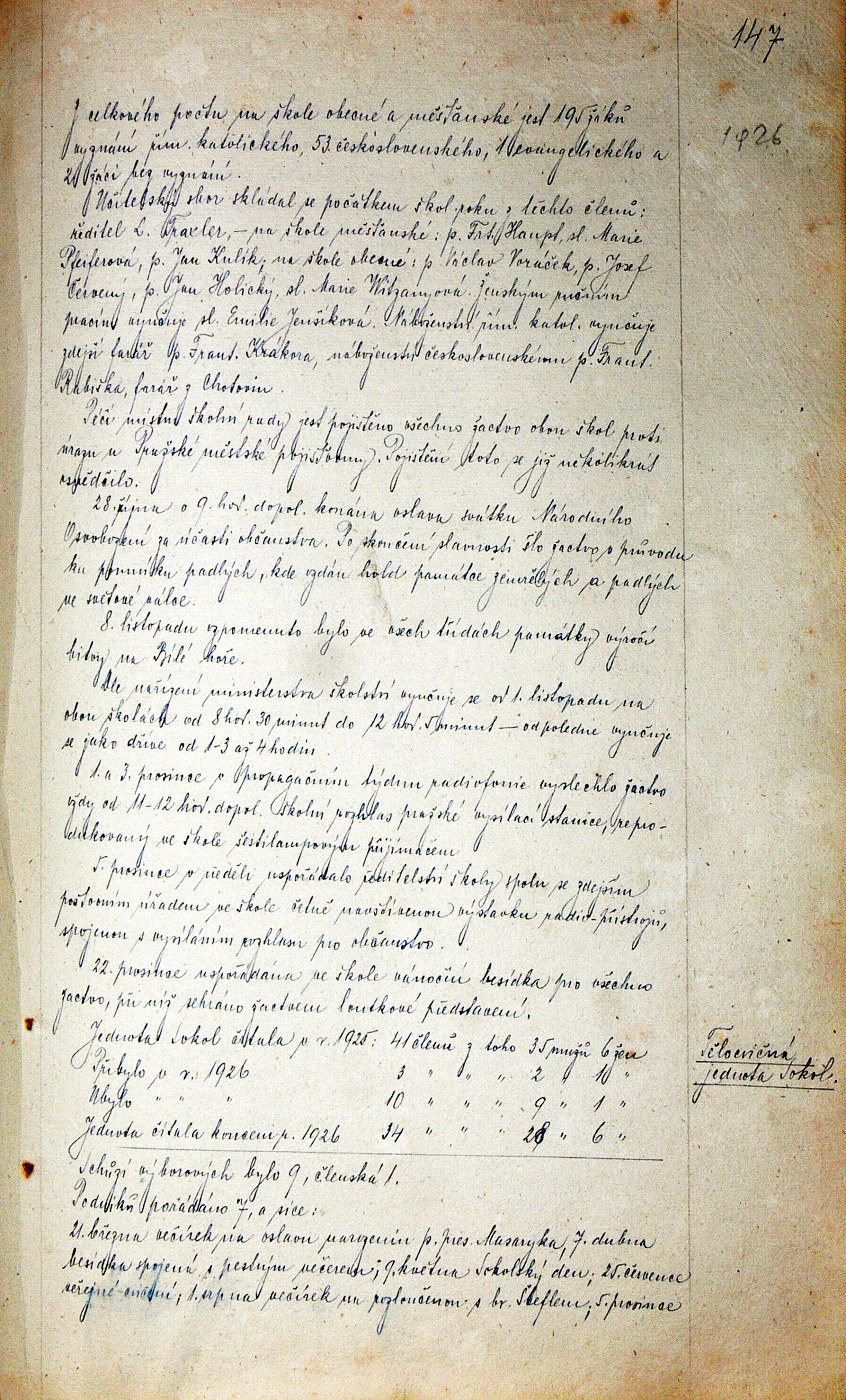 147
1926
Z celkového počtu na škole obecné a měšťanské jest 195 žáků
vyznání řím. katolického, 53 československého, 1 evangelického a
2 žáci bez vyznání.
Učitelský sbor skládal se počátkem škol. roku z těchto členů:
ředitel L. Traxler, – na škole měšťanské: p. Frt. Haupt, sl. Marie
Pfeiferová, p. Jan Kulík; na škole obecné: p. Václav Voráček, p. Josef
Červený, p. Jan Holický, sl. Marie Witzanyová. Ženským ručním
pracím vyučuje sl. Emilie Jenšíková. Náboženství řím. katol. vyučuje
zdejší farář p. Frant. Krákora, náboženství československému p. Frant.
Rubiška, farář z Chotovin.
Péčí místní školní rady jest pojištěno všechno žactvo obou škol proti
úrazu u Pražské městské pojišťovny. Pojištění toto se již několikrát
osvědčilo.
28. října o 9. hod. dopol. konána oslava svátku Národního
Osvobození za účasti občanstva. Po skončení slavnosti šlo žactvo v průvodu
ku pomníku padlých, kde vzdán hold památce zemřelých a padlých
ve světové válce.
8. listopadu vzpomenuto bylo ve všech třídách památky výročí
bitvy na Bílé hoře.
Dle nařízení ministerstva školství vyučuje se od 1. listopadu na
obou školách od 8 hod. 30 minut do 12 hod. 5 minut – odpoledne vyučuje
se jako dříve od 1-3 až 4 hodin.
1. a 3. prosince v propagačním týdnu radiofonie vyslechlo žactvo
vždy od 11-12 hod. dopol. školní rozhlas pražské vysílací stanice, repro-
dukovaný ve škole šestilampovým přijímačem
5. prosince v neděli uspořádalo ředitelství školy spolu se zdejším
poštovním úřadem ve škole četně navštívenou výstavku radio-přístrojů,
spojenou s vysíláním rozhlasu pro občanstvo.
22. prosince uspořádána ve škole vánoční besídka pro všechno
žactvo, při níž sehráno žactvem loutkové představení.
Jednota Sokol čítala v r. 1925: 41 členů z toho 35 mužů 6 žen
Tělocvičná
jednota Sokol.
Přibylo v r. 1926 3 " " " 2 " 1 "
Ubylo " " " 10 " " " 9 " 1 "
Jednota čítala koncem r. 1926 34 " " " 28 " 6 "
Schůzí výborových bylo 9, členská 1.
Podniků pořádáno 7, a sice:
21. března večírek na oslavu narozenin p. pres. Masaryka, 7. dubna
besídka spojená s pestrým večerem; 9. května Sokolský den; 25. července
veřejné cvičení; 1. srpna večírek na rozloučenou s br. Šteflem; 5. prosince